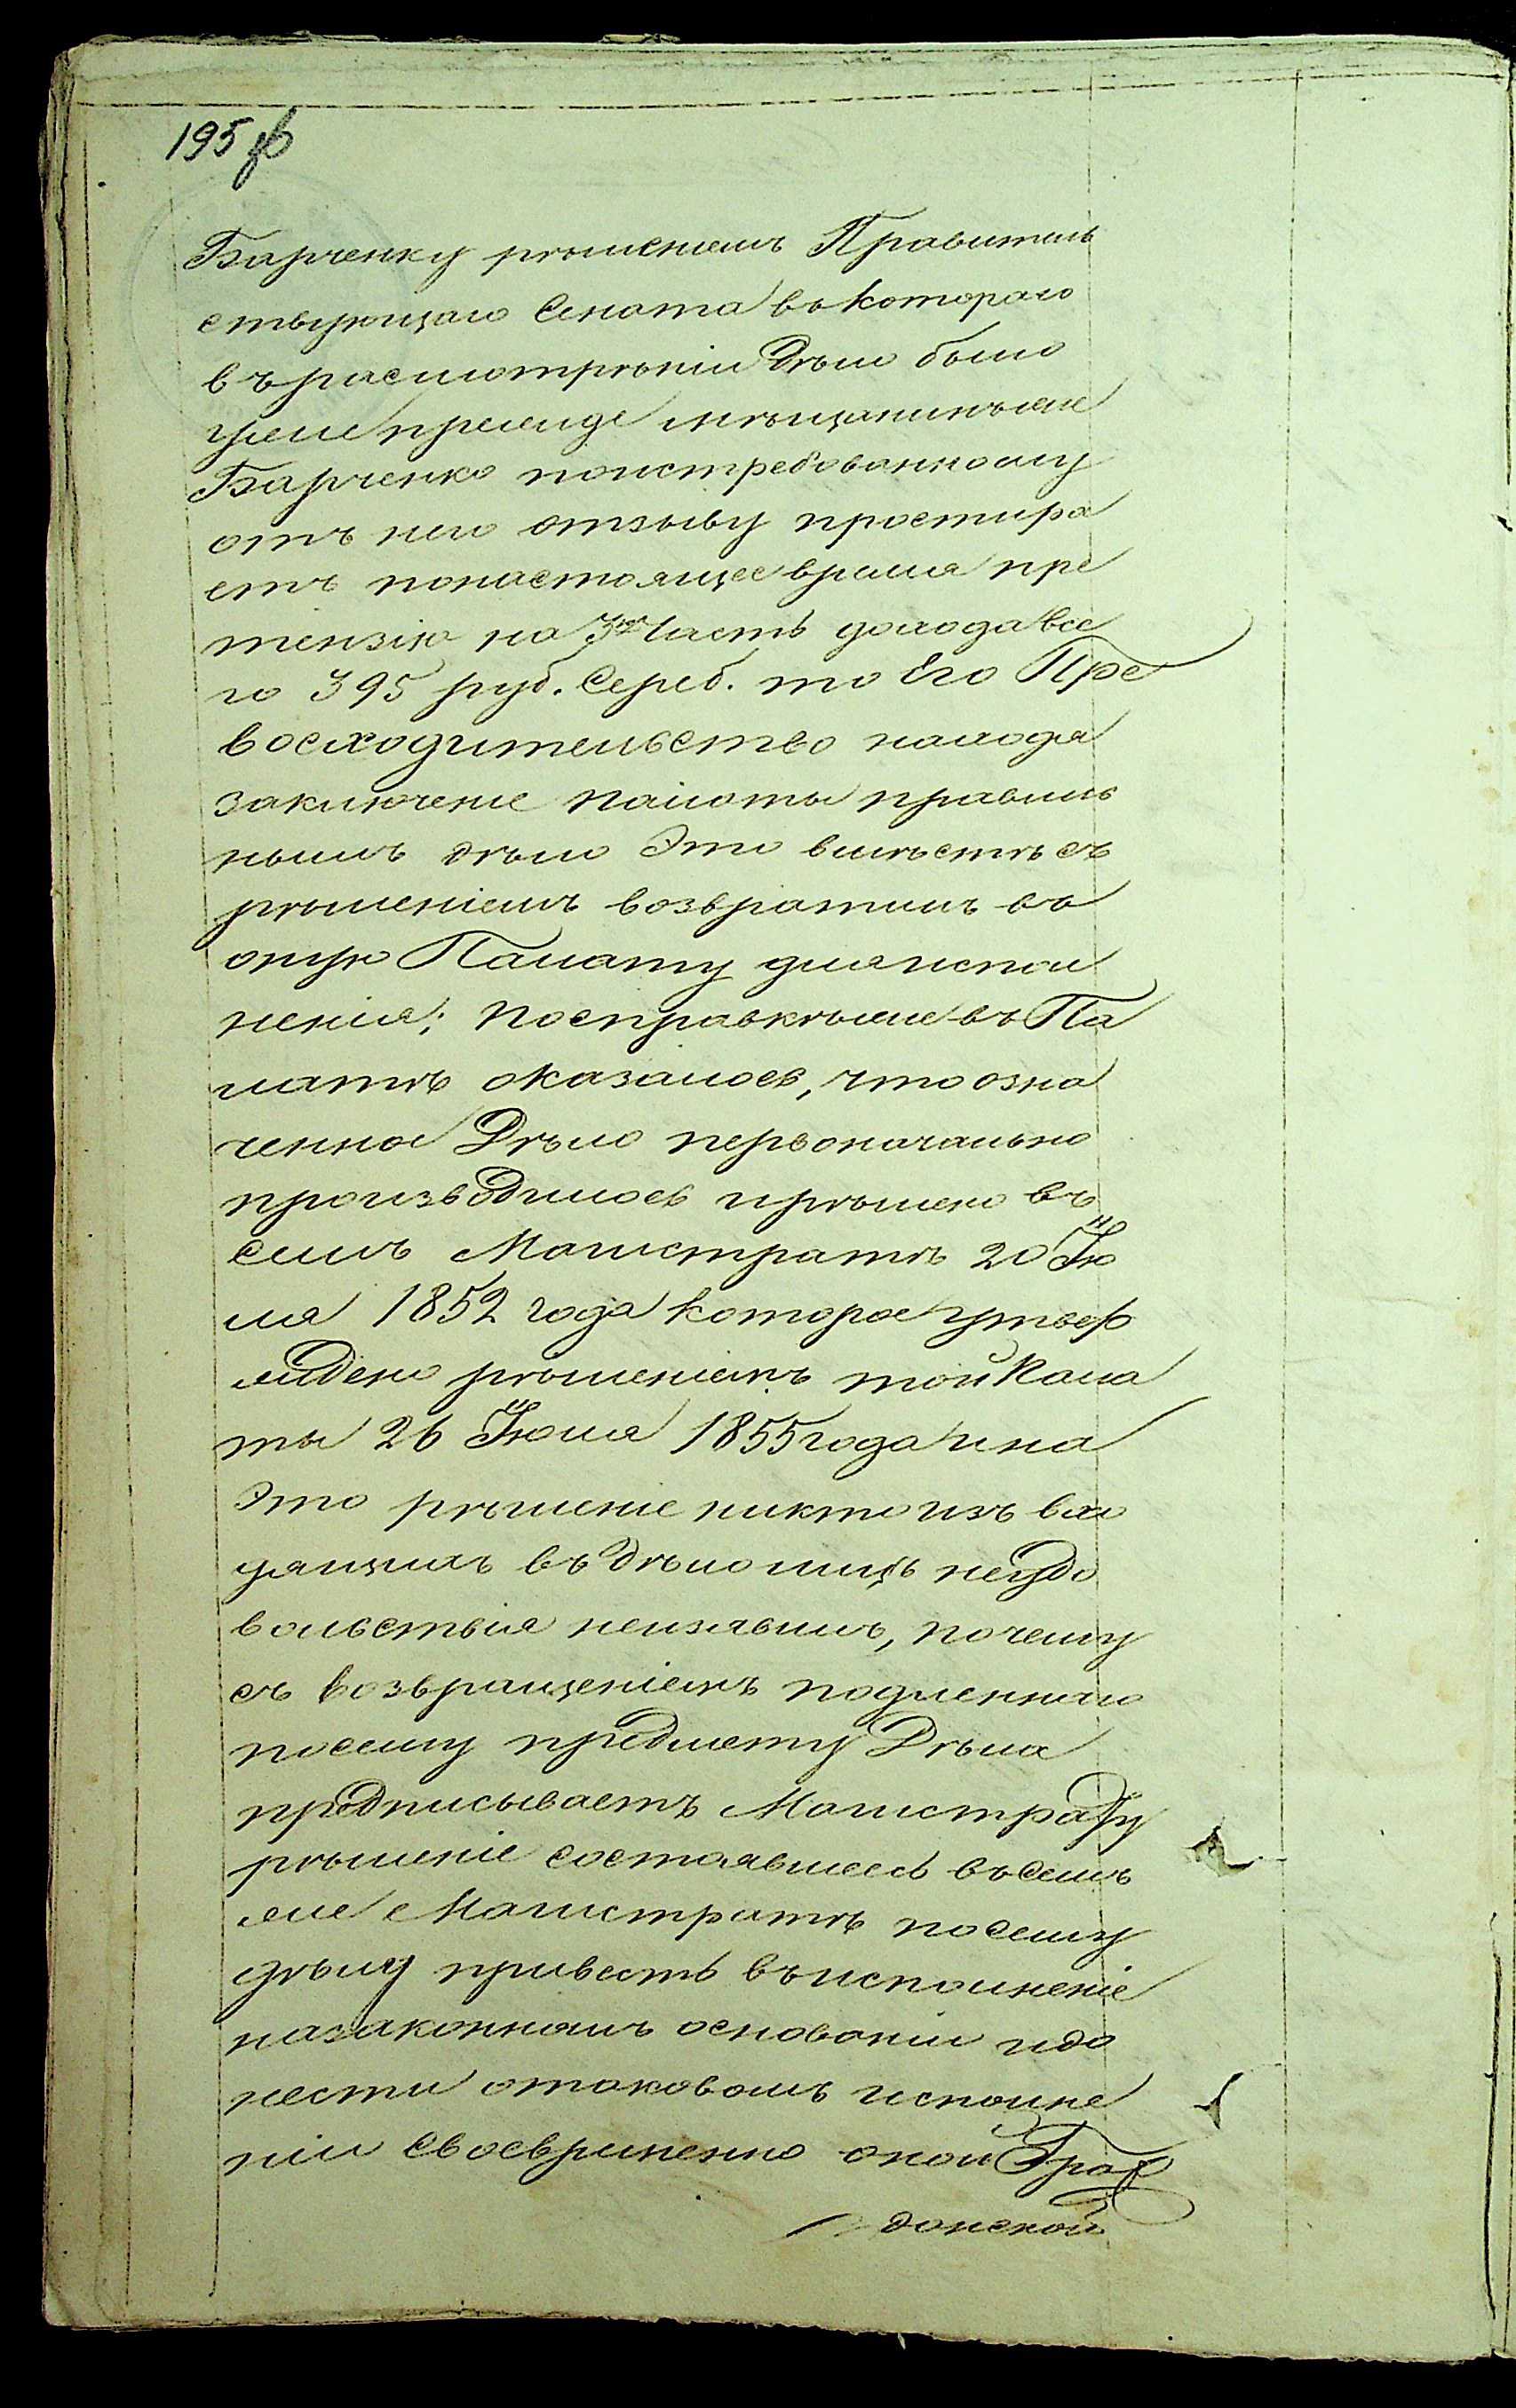 195 об
Барченку рѣшенiемъ Правитель
ствующаго Сената въ котораго
въ расмотрѣнiи Дѣло было
уже прежде мѣщанинъ же
Барченко по истребованному
отъ него отзыву простира
етъ по настоящее время пре
тензiю на 3ю Часть дохода все
го 395 руб. Сереб. то Его Пре
восходительство находя
заключенiе палаты правиль
нымъ дѣло Это вмѣстѣ съ
рѣшенiемъ возвратилъ въ
оную Палату для испол
ненiя; по справкѣ же въ Па
латѣ оказалось, что озна
ченное Дѣло первоначально
производилось и рѣшено въ
семъ Магистратѣ 20 Iю
ля 1852 года которое утвер
ждено рѣшенiемъ той Пала
ты 26 Iюля 1855 года и на
Это рѣшенiе никто изъ вхо
дящихъ въ дѣло лицъ неудо
вольствiя неизявилъ, почему
съ возвращенiемъ подленнаго
по сему предмету Дѣла
предписываетъ Магистрату
рѣшенiе состоявшееся въ семъ
же Магистратѣ по сему
дѣлу привесть въ исполненiе
на законномъ основанiи и до
нести о таковомъ исполне
нiи своевременно оной Граж
данской